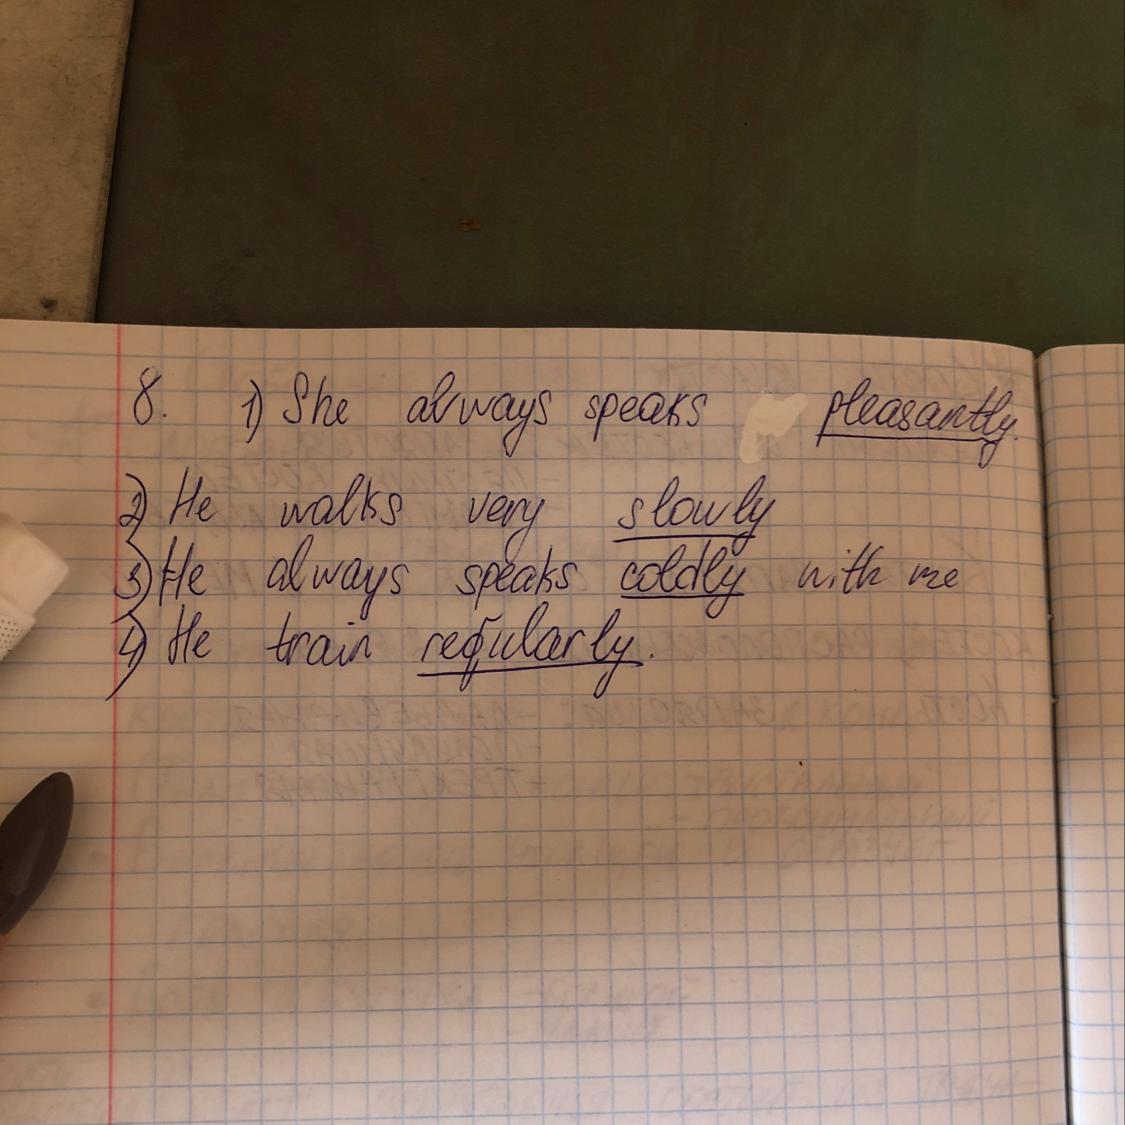 8. 1) She always speaks pleasantly.
2) He walks very slowly
3) He always speaks coldly with me
4) He train regularly.